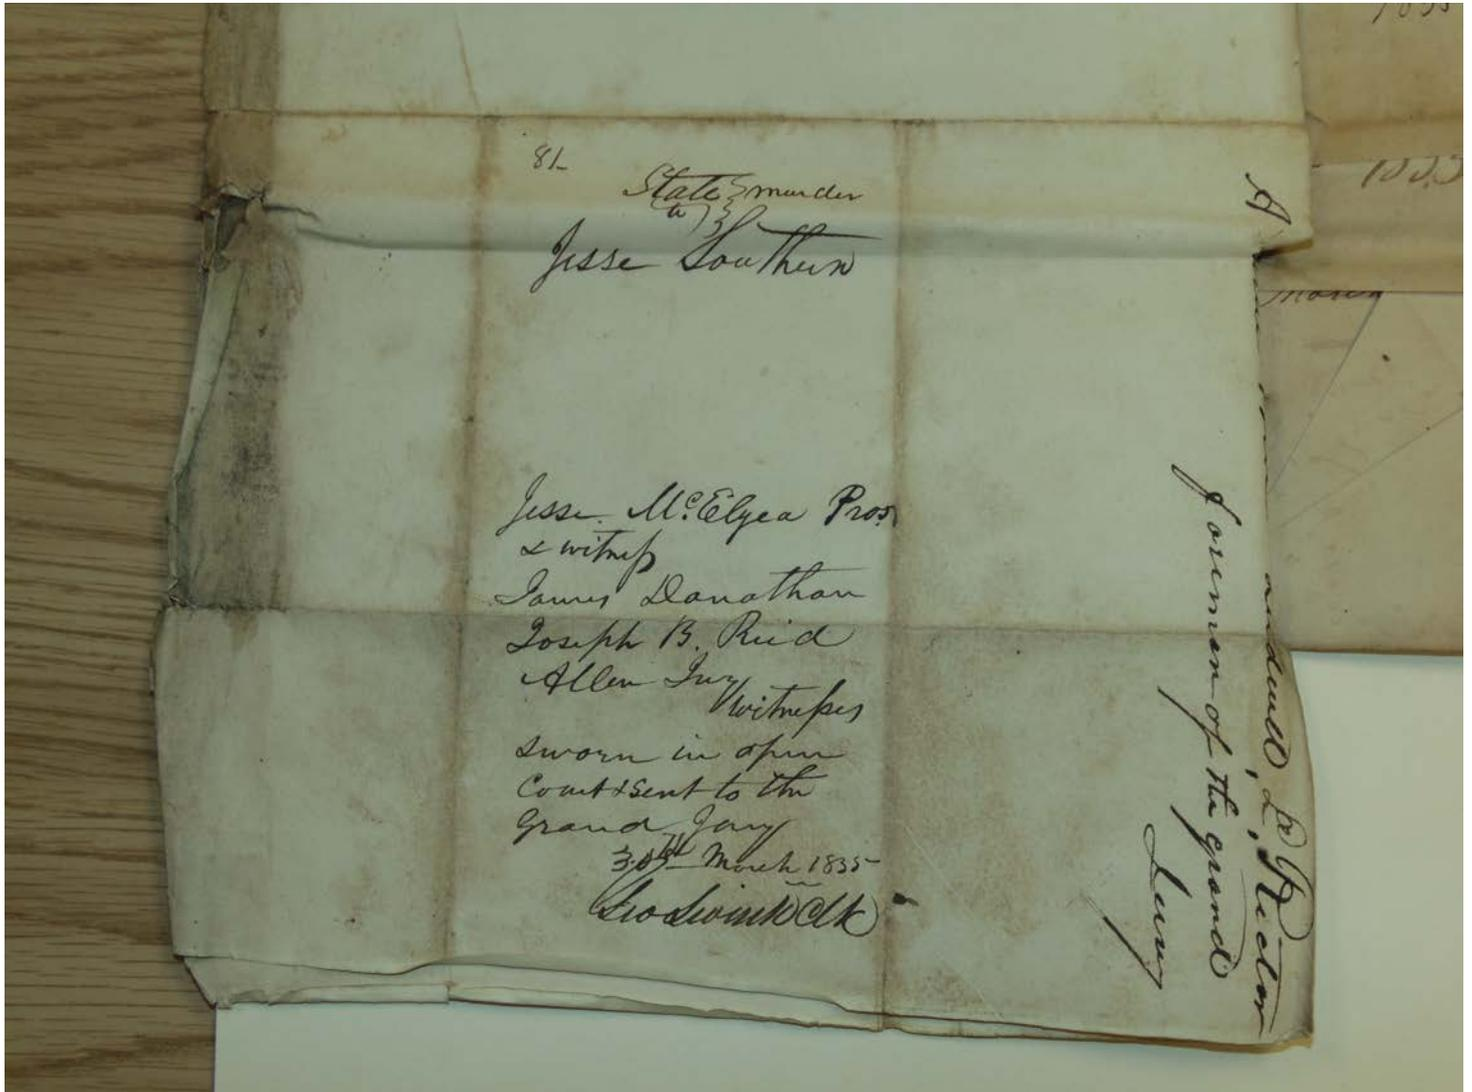 81_
State } murder
vs }
Jesse Southern
Jesse McElyea Pros.
& witness
James Donathan
Joseph B. Reid
Allen Ivy
witnesses
sworn in open
Court & Sent to the
Grand Jury
30th March 1835
Clk
A
foreman of the grand
Jury
March